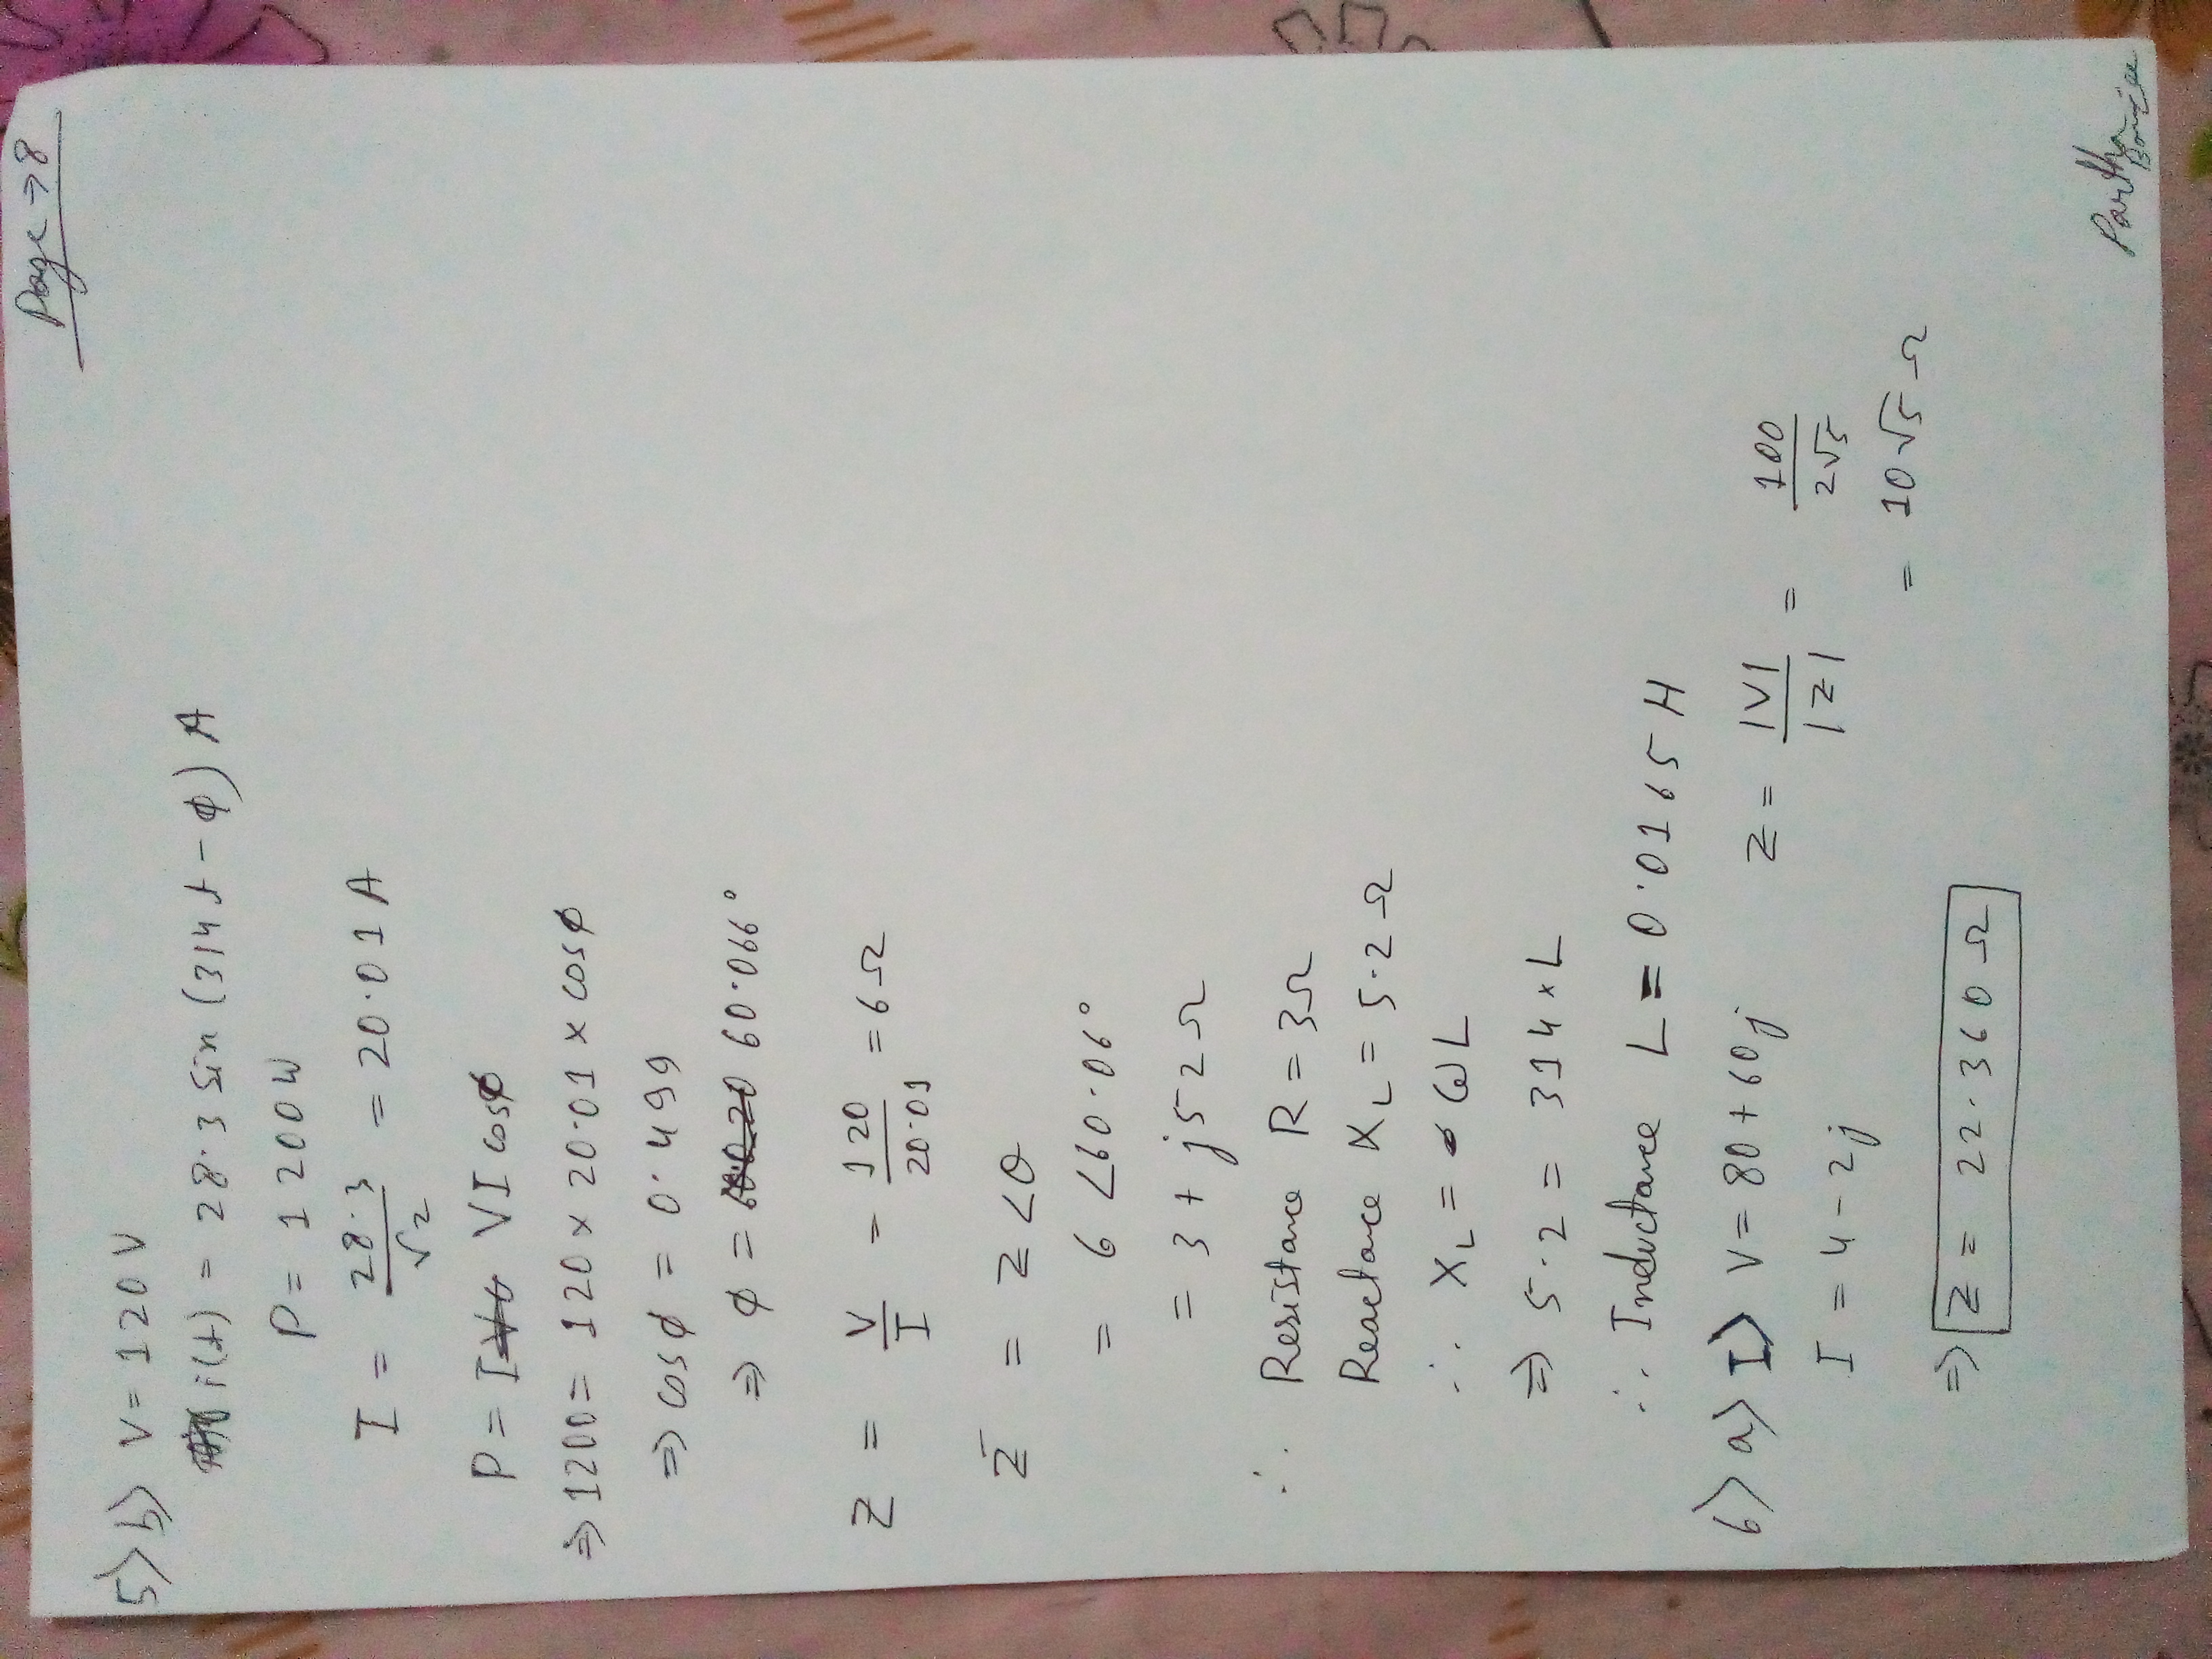 Page → 8
5> b> V = 120 V
i(t) = 28.3 Sin (314t - ϕ) A
P = 1200W
I = 28.3 / √2 = 20.01 A
P = I VI cosϕ
⇒ 1200 = 120 × 20.01 × cosϕ
⇒ cosϕ = 0.499
⇒ ϕ = 60.066°
Z = V / I = 120 / 20.01 = 6Ω
Z̄ = Z ∠θ
= 6 ∠60.06°
= 3 + j52Ω
∴ Resistance R = 3Ω
Reactance X_L = 5.2Ω
∴ X_L = ωL
⇒ 5.2 = 314 × L
∴ Inductance L = 0.0165 H
6> a> I> V = 80 + 60j Z = |V| / |Z| = 100 / 2√5
I = 4 - 2j
= 10√5 Ω
⇒ Z = 22.360 Ω
Partha